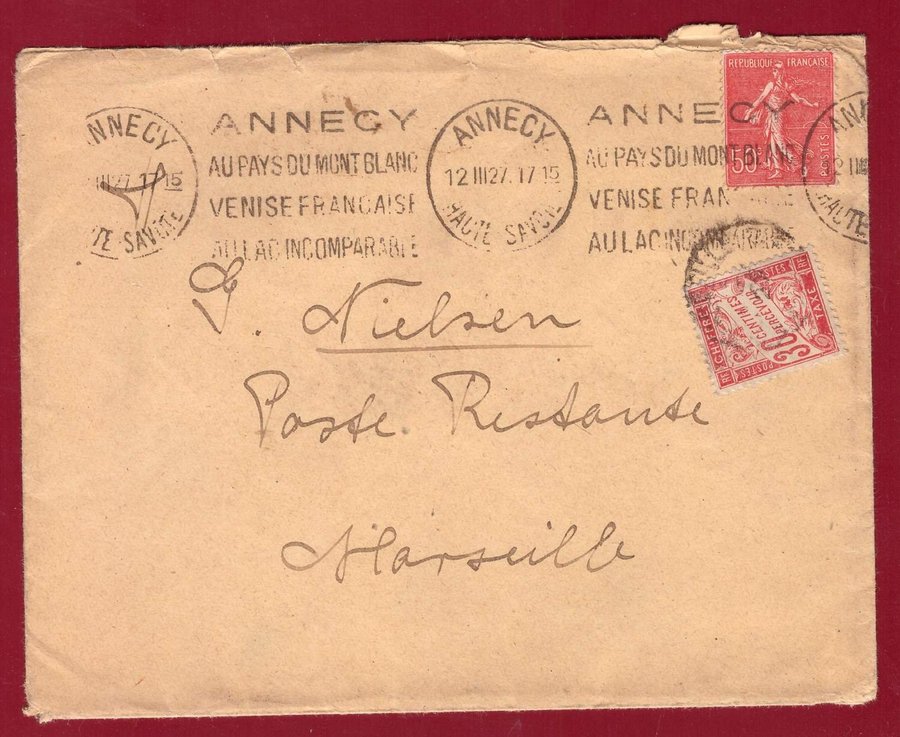 ANNECY
12 III 27. 17 15
HAUTE SAVOIE
ANNECY
AU PAYS DU MONT BLANC
VENISE FRANCAISE
AU LAC INCOMPARABLE
ANNECY
12 III 27. 17 15
HAUTE SAVOIE
ANNECY
AU PAYS DU MONT BLANC
VENISE FRAN
AU LAC INCOMPARABLE
REPUBLIQUE FRANÇAISE
50c
POSTES
ANN
12 III
HAUTE
RF POSTES RF
CHIFFRE TAXE
30 CENTIMES
A PERCEVOIR
RF POSTES
G. Nielsen
Poste Restante
Marseille